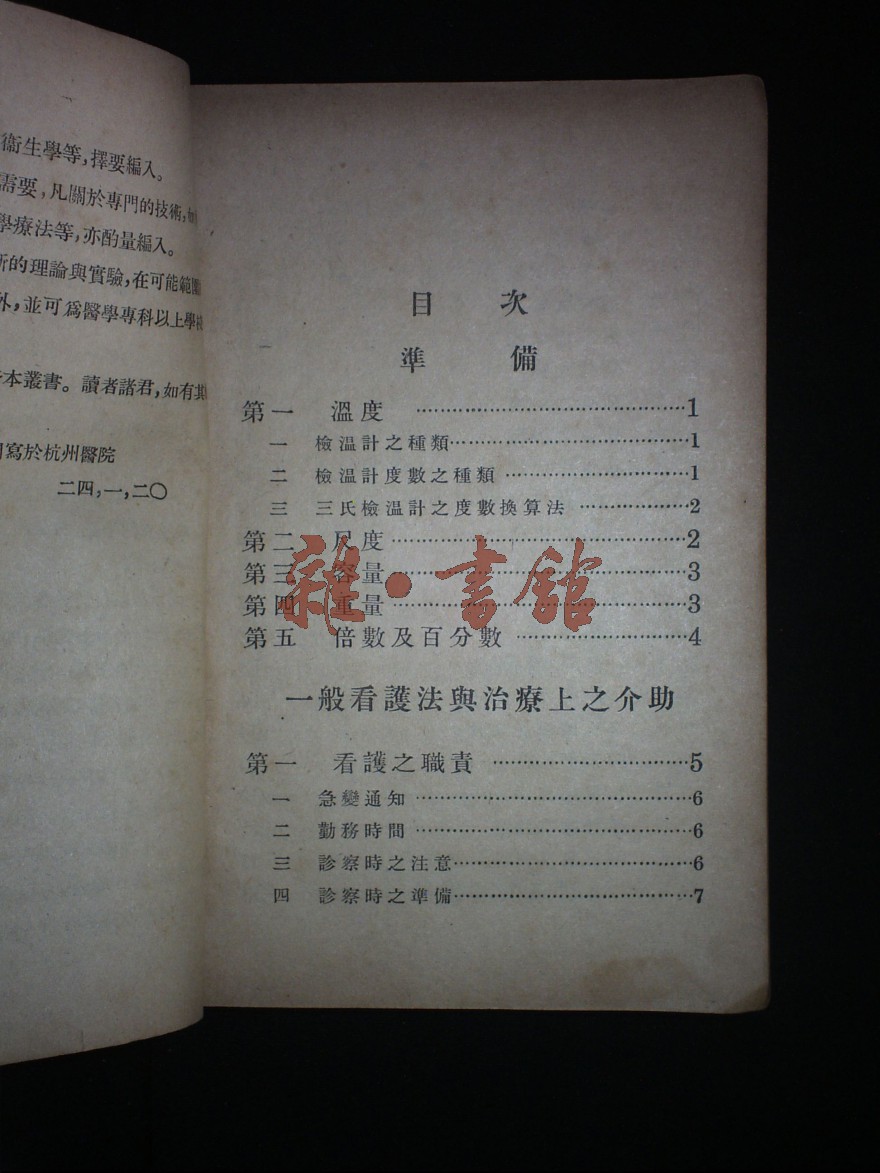 衞生學等，擇要編入。
需要，凡關於專門的技術，
學療法等，亦酌量編入。
的理論與實驗，在可能範圍
外，並可爲醫學專科以上學
本叢書。讀者諸君，如有其
寫於杭州醫院
二四，一，二〇
目次
準備
第一 溫度 1
一 檢溫計之種類 1
二 檢溫計度數之種類 1
三 三氏檢溫計之度數換算法 2
第二 尺度 2
第三 容量 3
第四 重量 3
第五 倍數及百分數 4
雜·書館
一般看護法與治療上之介助
第一 看護之職責 5
一 急變通知 6
二 勤務時間 6
三 診察時之注意 6
四 診察時之準備 7